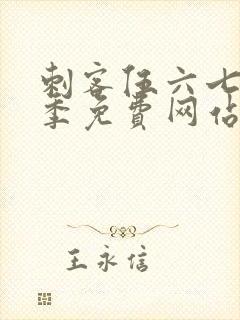 刺客伍六七
季免费网站
王永信